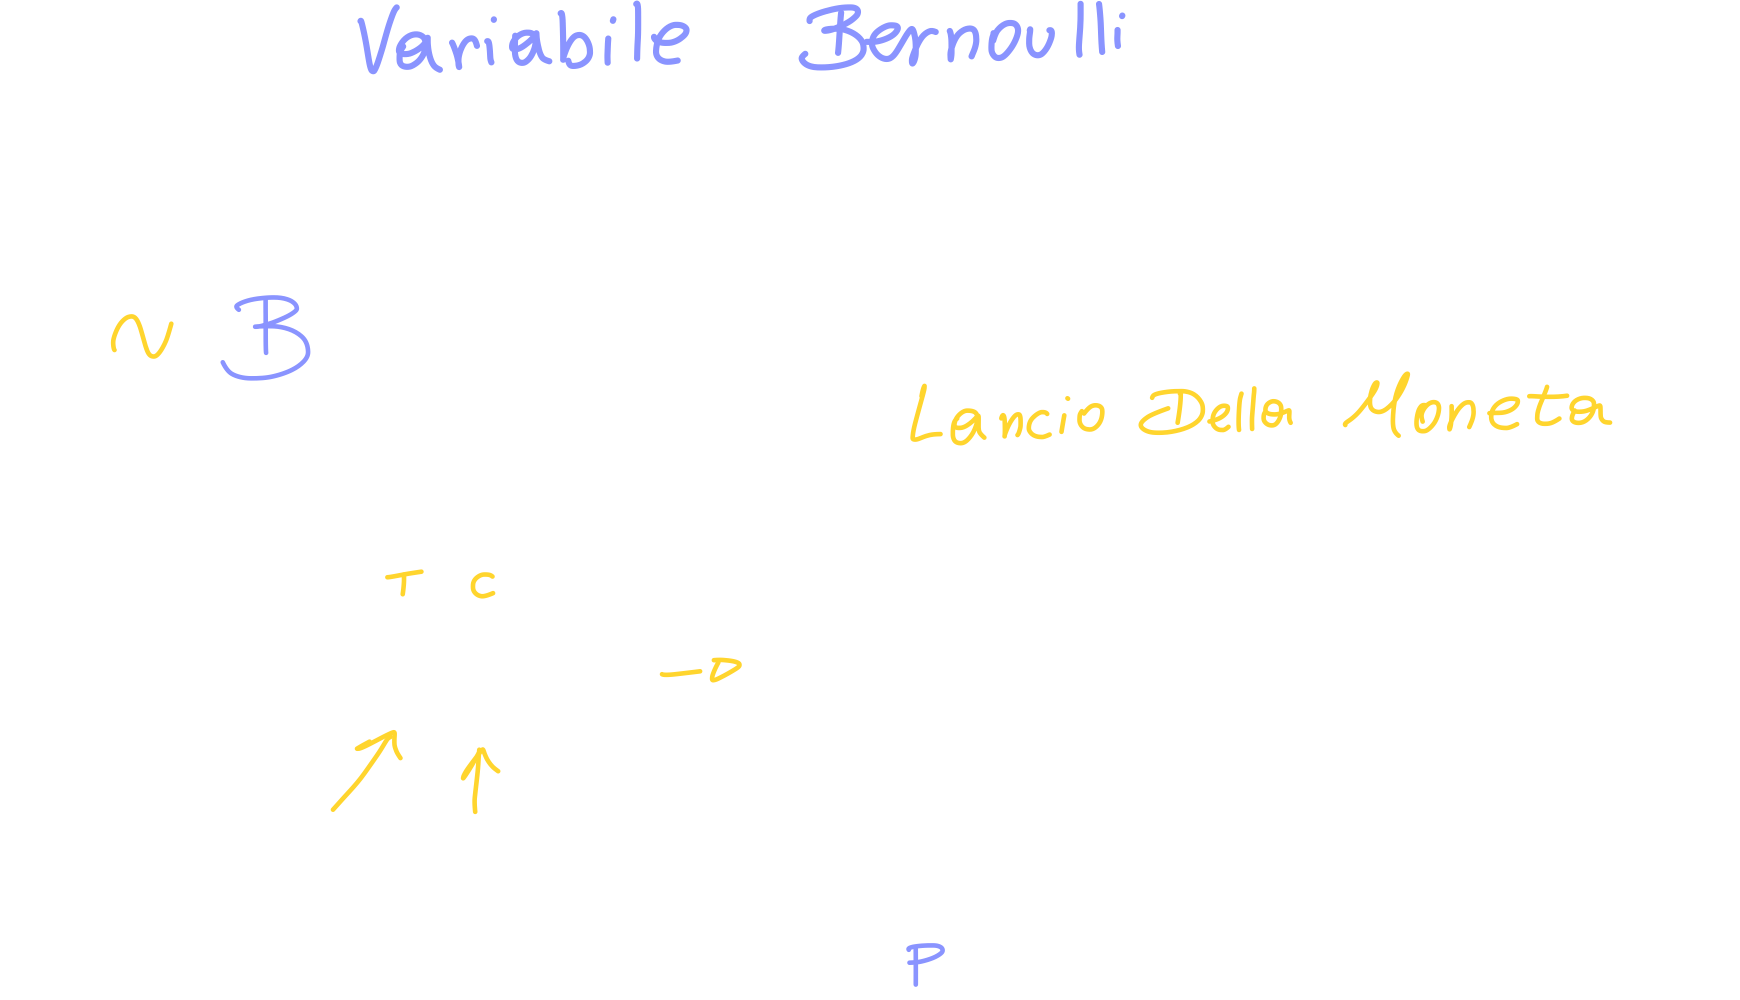 Variabile Bernoulli
~ B
Lancio Della Moneta
T C
→
↗ ↑
P